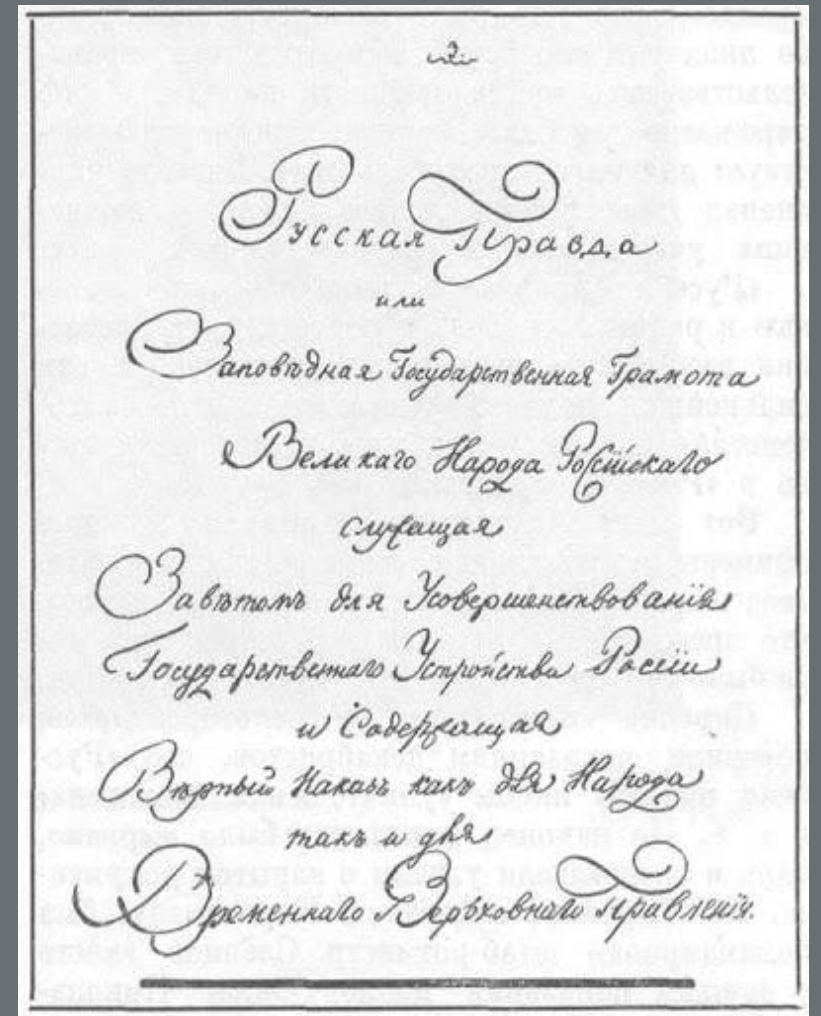 2.
Русская Правда
или
Заповѣдная Государственная Грамота
Великаго Народа Россійскаго
служащая
Завѣтомъ для Усовершенствованія
Государственнаго Устройства Россіи
и Содержащая
Вѣрный Наказъ какъ для Народа
такъ и для
Временнаго Верьховнаго Правленія.